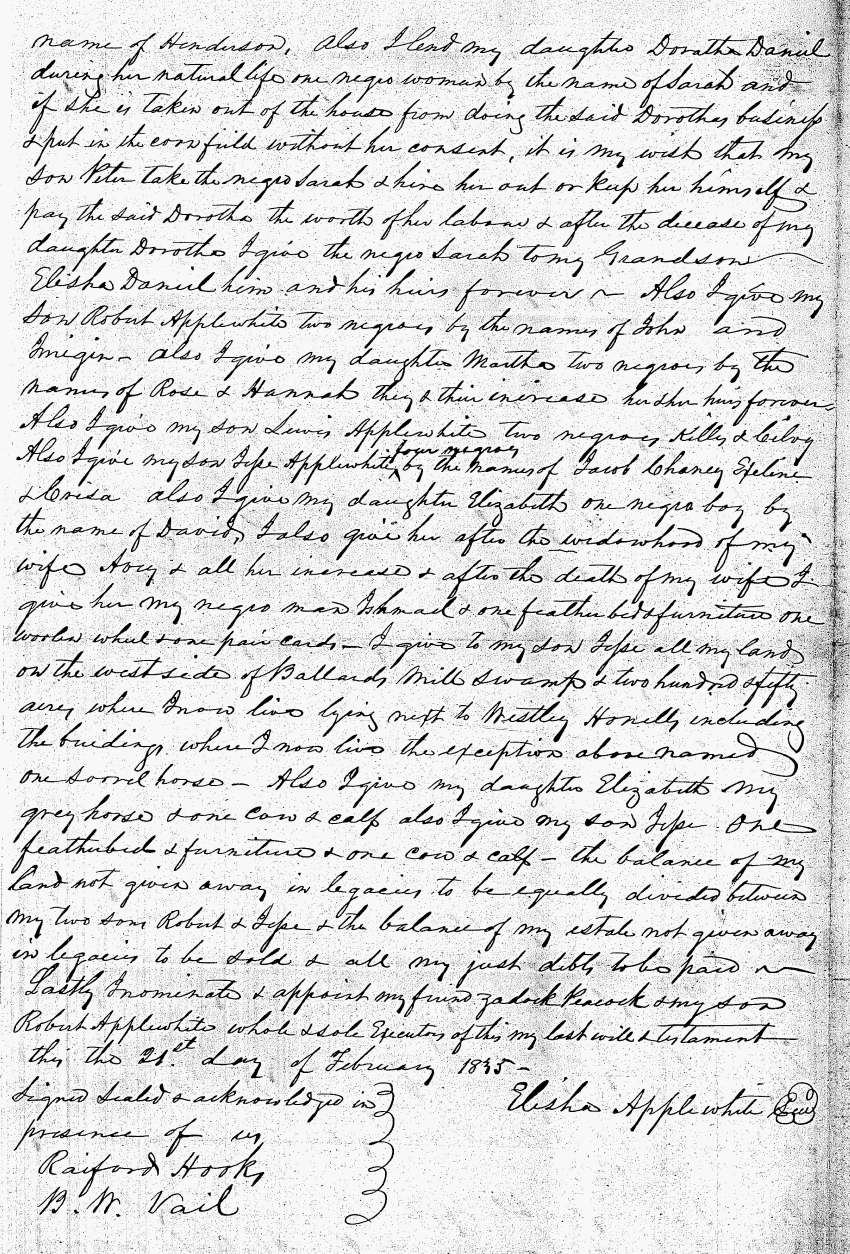 name of Henderson, Also I lend my daughter Doratha Daniel
during her natural life one negro woman by the name of Sarah and
if she is taken out of the house from doing the said Dorothas business
& put in the corn field without her consent, it is my wish that my
son Peter take the negro Sarah & hire her out or keep her himself &
pay the said Dorotha the worth of her labour & after the decease of my
daughter Dorotha I give the negro Sarah to my Grandson
Elisha Daniel him and his heirs forever ~ Also I give my
son Robert Applewhite two negroes by the names of John and
Imigin - also I give my daughter Martha two negroes by the
names of Rose & Hannah they & their increase her & her heirs forever -
Also I give my son Lewis Applewhite two negroes Killis & Cilvy
Also I give my son Jesse Applewhite four negroes by the names of Jacob Chaney Exeline
& Crisa also I give my daughter Elizabeth one negro boy by
the name of David, I also give her after the widowhood of my
wife Avey & all her increase & after the death of my wife I
give her my negro man Ishmael & one feather bed & furniture one
woolen wheel & one pair cards - I give to my son Jesse all my land
on the west side of Ballards Mill swamp & two hundred & fifty
acres where I now live lying next to Westley Howells including
the buidings where I now live the exception above named
one sorrel horse - Also I give my daughter Elizabeth my
grey horse & one cow & calf also I give my son Jesse one
featherbed & furniture & one cow & calf - the balance of my
land not given away in legacies to be equally divided between
my two sons Robert & Jesse & the balance of my estate not given away
in legacies to be sold & all my just debts to be paid ~
Lastly I nominate & appoint my friend Zadock Peacock & my son
Robert Applewhite whole & sole Executors of this my last will & testament
this the 21st day of February 1835 -
Signed sealed & acknowledged in
presence of us
Elisha Applewhite Seal
Raiford Hooks
B. W. Vail